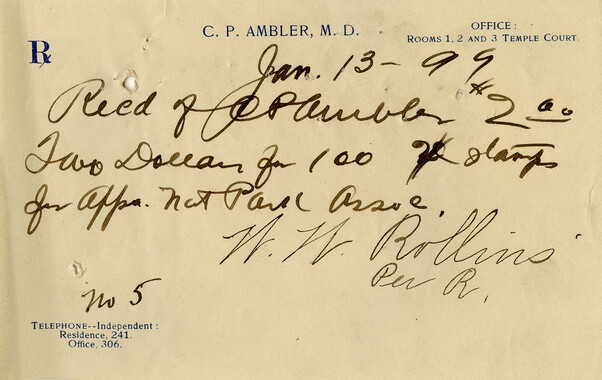 ℞
C. P. AMBLER, M. D.
OFFICE:
ROOMS 1, 2 AND 3 TEMPLE COURT.
Jan. 13 - 99
Recd of C P Ambler $2 00
Two Dollars for 100 2¢ stamps
for Appa. Nat Park Assoc.
W. W. Rollins
Per R.
No 5
TELEPHONE--Independent:
Residence, 241.
Office, 306.